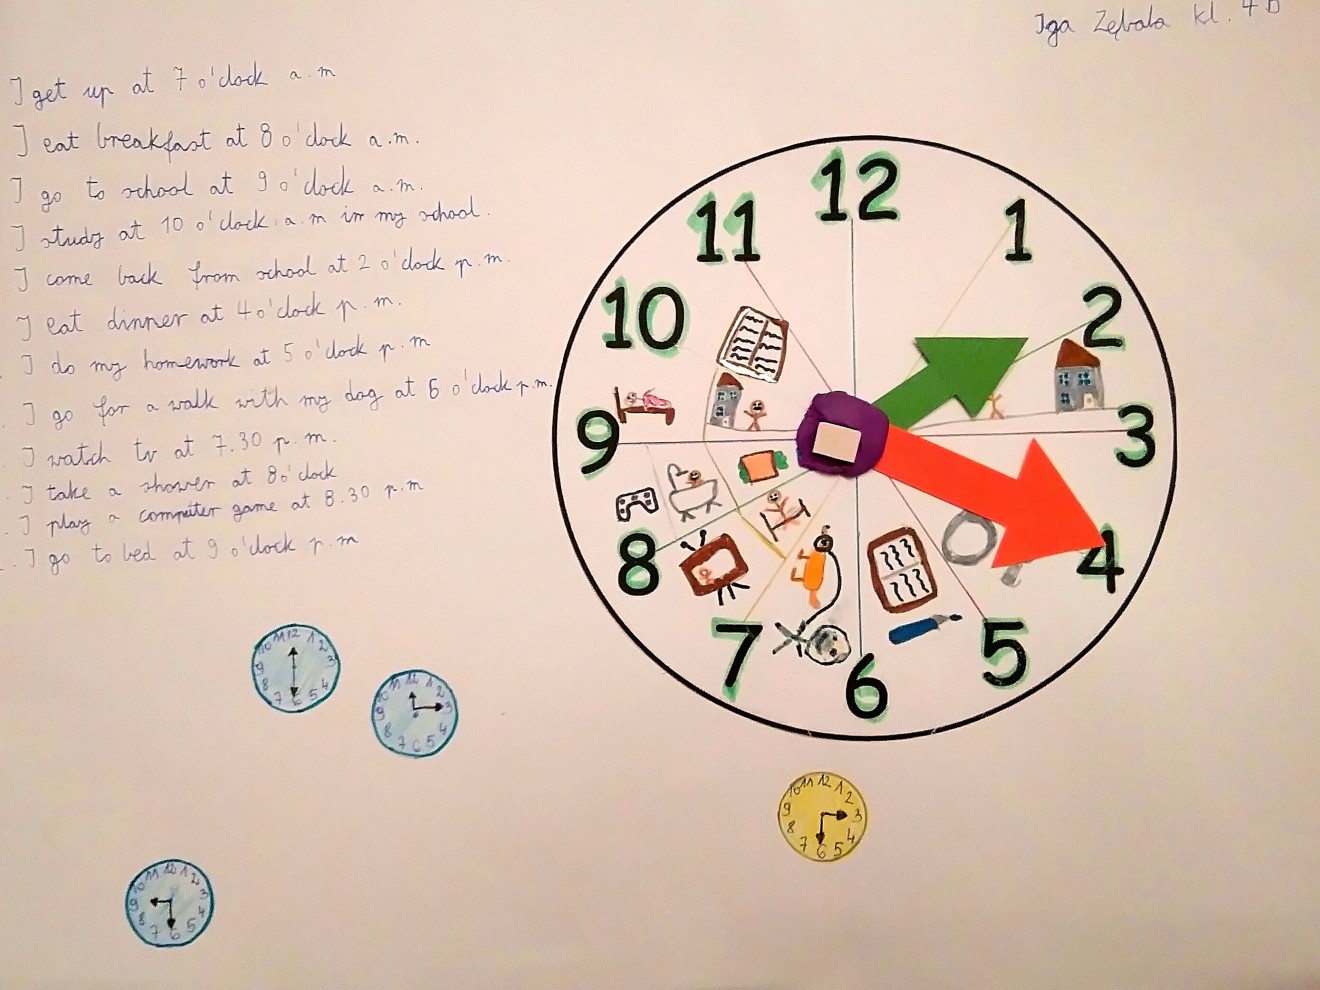 Iga Zębala kl. 4 B
I get up at 7 o'clock a.m
I eat breakfast at 8 o'clock a.m.
I go to school at 9 o'clock a.m.
I study at 10 o'clock a.m in my school.
I come back from school at 2 o'clock p.m.
I eat dinner at 4 o'clock p.m.
I do my homework at 5 o'clock p.m
I go for a walk with my dog at 6 o'clock p.m.
I watch tv at 7.30 p.m.
I take a shower at 8 o'clock
I play a computer game at 8.30 p.m
I go to bed at 9 o'clock p.m
12
11
1
10
2
9
3
8
4
7
5
6
12 1 2 3 4 5 6 7 8 9 10 11
12 1 2 3 4 5 6 7 8 9 10 11
12 1 2 3 4 5 6 7 8 9 10 11
12 1 2 3 4 5 6 7 8 9 10 11